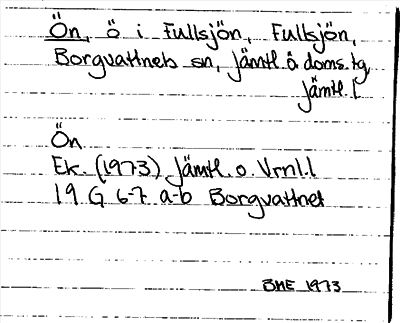 Ön, ö i Fullsjön, Fullsjön,
Borgvattnets sn, Jämtl. å doms. tg,
Jämtl. l
Ön
Ek. (1973) Jämtl. o. Vrnl. l
19 G 6-7 a-b Borgvattnet
BME 1973